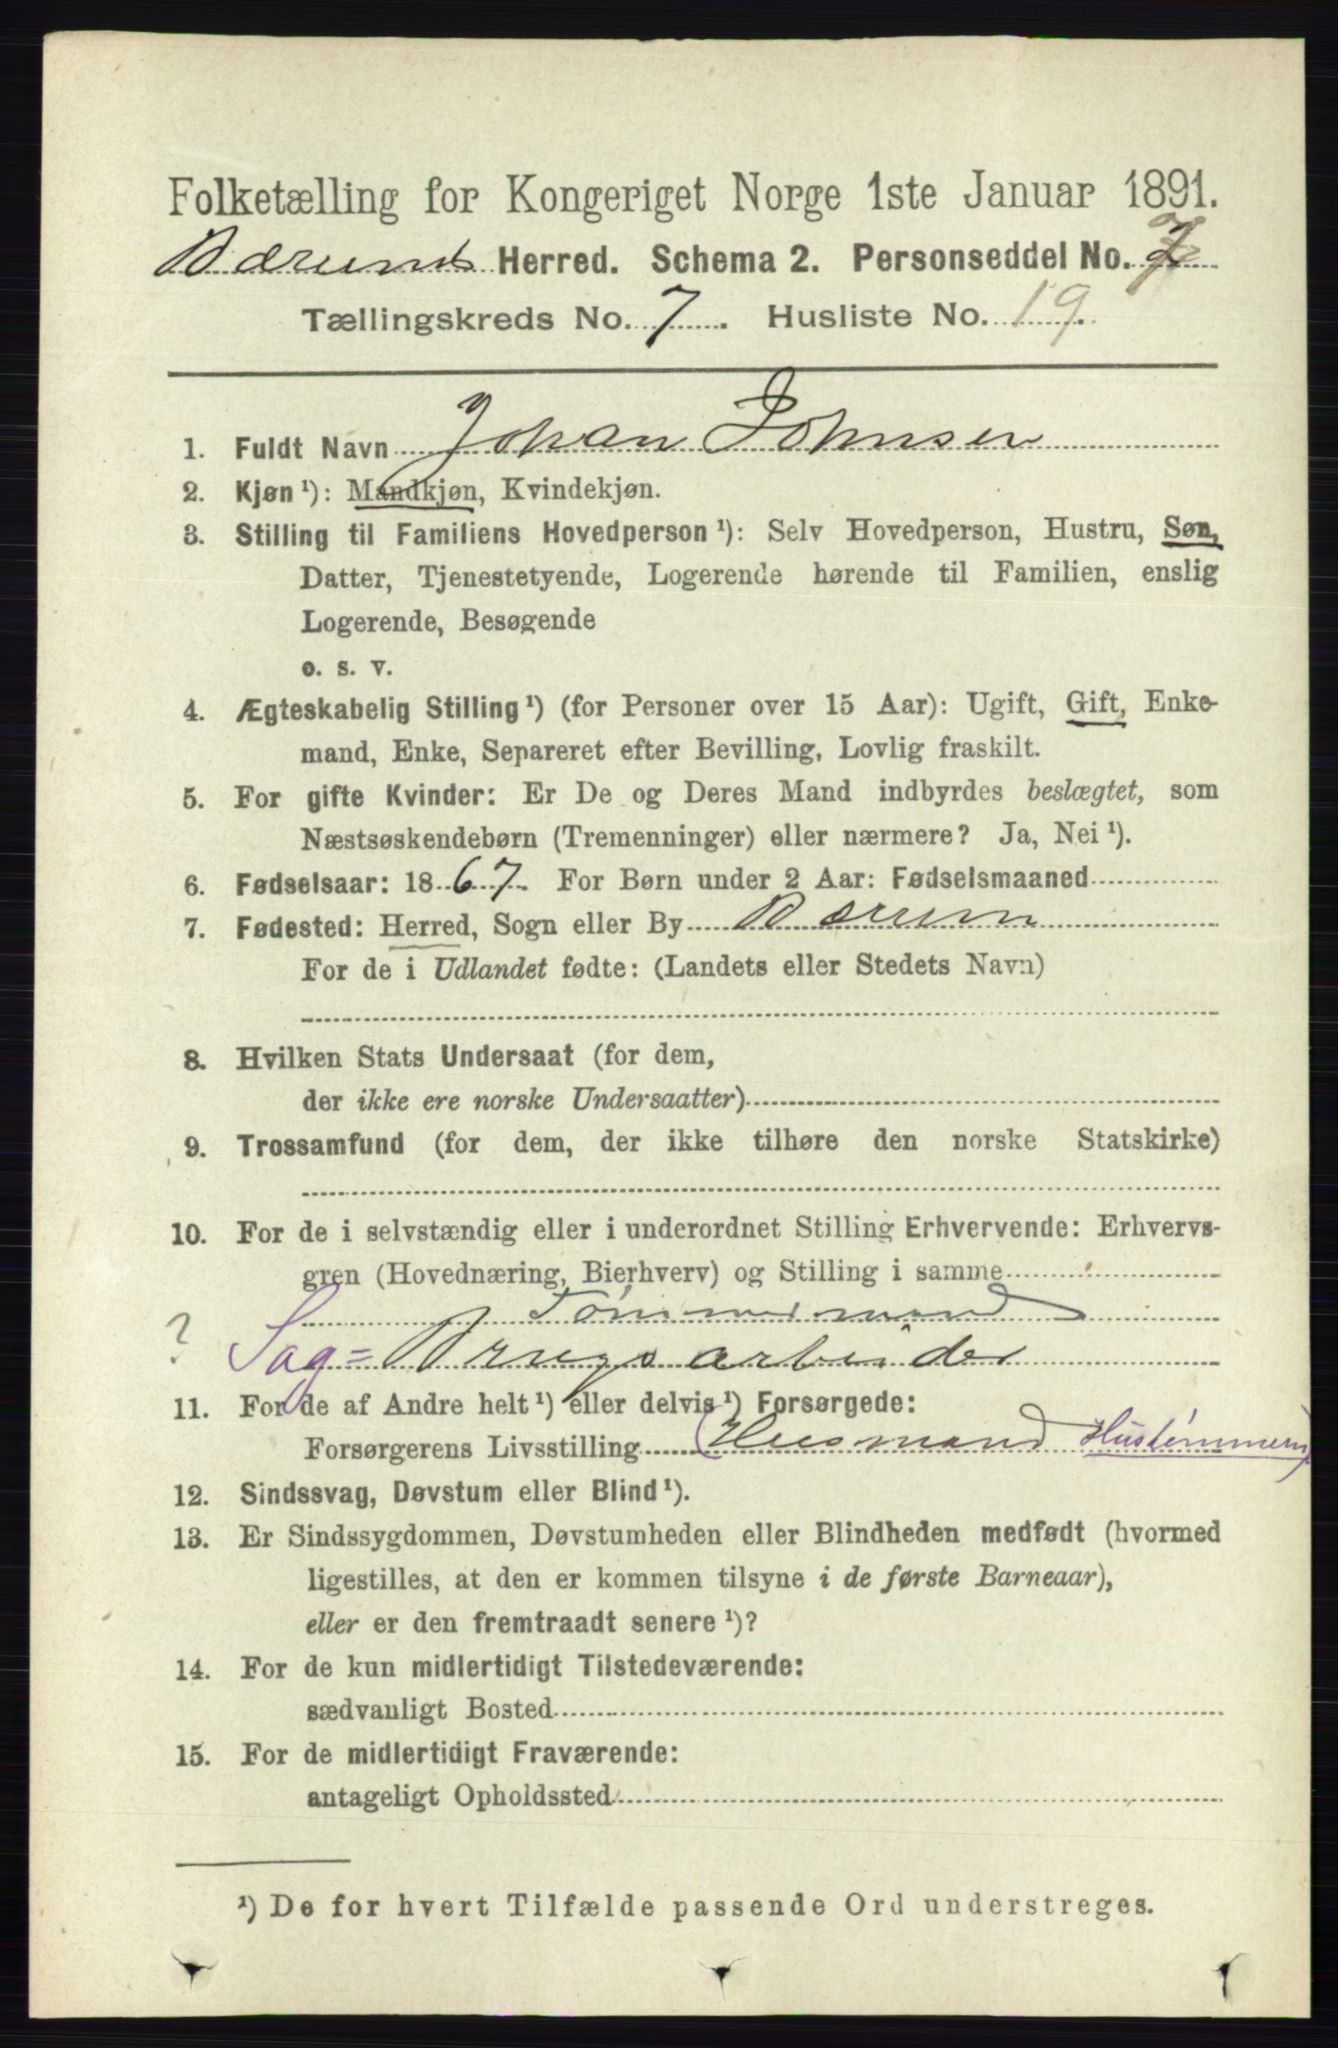 Folketælling for Kongeriget Norge 1ste Januar 1891.
Bærums Herred. Schema 2. Personseddel No. 7
Tællingskreds No. 7. Husliste No. 19.
1. Fuldt Navn Johan Johnsen
2. Kjøn ¹): Mandkjøn, Kvindekjøn.
3. Stilling til Familiens Hovedperson ¹): Selv Hovedperson, Hustru, Søn,
Datter, Tjenestetyende, Logerende hørende til Familien, enslig
Logerende, Besøgende
o. s. v.
4. Ægteskabelig Stilling ¹) (for Personer over 15 Aar): Ugift, Gift, Enke-
mand, Enke, Separeret efter Bevilling, Lovlig fraskilt.
5. For gifte Kvinder: Er De og Deres Mand indbyrdes beslægtet, som
Næstsøskendebørn (Tremenninger) eller nærmere? Ja, Nei ¹).
6. Fødselsaar: 1867. For Børn under 2 Aar: Fødselsmaaned
7. Fødested: Herred, Sogn eller By Bærum
For de i Udlandet fødte: (Landets eller Stedets Navn)
8. Hvilken Stats Undersaat (for dem,
der ikke ere norske Undersaatter)
9. Trossamfund (for dem, der ikke tilhøre den norske Statskirke)
10. For de i selvstændig eller i underordnet Stilling Erhvervende: Erhvervs-
gren (Hovednæring, Bierhverv) og Stilling i samme
Tømmermand
? Sag= Brugsarbeider
11. For de af Andre helt ¹) eller delvis ¹) Forsørgede:
Forsørgerens Livsstilling (Husmand Hustømmerm)
12. Sindssvag, Døvstum eller Blind ¹).
13. Er Sindssygdommen, Døvstumheden eller Blindheden medfødt (hvormed
ligestilles, at den er kommen tilsyne i de første Barneaar),
eller er den fremtraadt senere ¹)?
14. For de kun midlertidigt Tilstedeværende:
sædvanligt Bosted
15. For de midlertidigt Fraværende:
antageligt Opholdssted
¹) De for hvert Tilfælde passende Ord understreges.